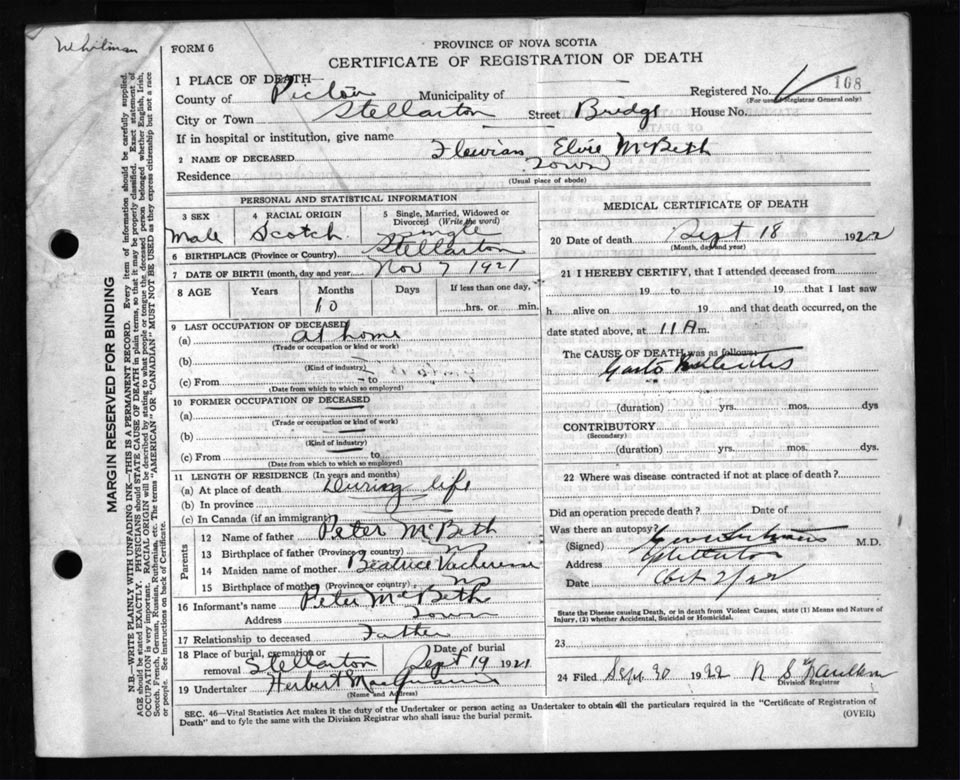 Whitman
FORM 6
PROVINCE OF NOVA SCOTIA
CERTIFICATE OF REGISTRATION OF DEATH
1 PLACE OF DEATH—
County of Pictou Municipality of
Registered No. 168
(For use of Registrar General only)
City or Town Stellarton Street Bridge House No.
If in hospital or institution, give name
2 NAME OF DECEASED Elvie McBeth
Residence Town
(Usual place of abode)
PERSONAL AND STATISTICAL INFORMATION
3 SEX Male
4 RACIAL ORIGIN Scotch
5 Single, Married, Widowed or Divorced (Write the word) Single
6 BIRTHPLACE (Province or Country) Stellarton
7 DATE OF BIRTH (month, day and year) Nov 7 1921
8 AGE Years Months Days If less than one day,
10 hrs. or min.
9 LAST OCCUPATION OF DECEASED
(a) at home
(Trade or occupation or kind or work)
(b)
(Kind of industry)
(c) From to
(Date from which to which so employed)
10 FORMER OCCUPATION OF DECEASED
(a)
(Trade or occupation or kind of work)
(b)
(Kind of industry)
(c) From to
(Date from which to which so employed)
11 LENGTH OF RESIDENCE (In years and months)
(a) At place of death During life
(b) In province
(c) In Canada (if an immigrant)
Parents
12 Name of father Peter McBeth
13 Birthplace of father (Province or country) NS
14 Maiden name of mother Beatrice
15 Birthplace of mother (Province or country) NS
16 Informant's name Peter McBeth
Address Town
17 Relationship to deceased Father
18 Place of burial, cremation or removal Stellarton Date of burial Sept 19 1921
19 Undertaker Herbert
(Name and Address)
MEDICAL CERTIFICATE OF DEATH
20 Date of death Sept 18 1922
(Month, day and year)
21 I HEREBY CERTIFY, that I attended deceased from
19 to 19 that I last saw
h alive on 19 and that death occurred, on the
date stated above, at 11 A m.
The CAUSE OF DEATH was as follows
(duration) yrs. mos. dys
CONTRIBUTORY
(Secondary)
(duration) yrs. mos. dys.
22 Where was disease contracted if not at place of death?
Did an operation precede death? Date of
Was there an autopsy?
(Signed) M.D.
Address Stellarton
Date Oct 2/22
State the Disease causing Death, or in death from Violent Causes, state (1) Means and Nature of
Injury, (2) whether Accidental, Suicidal or Homicidal.
23
24 Filed Sept 30 1922
Division Registrar
SEC. 46—Vital Statistics Act makes it the duty of the Undertaker or person acting as Undertaker to obtain all the particulars required in the "Certificate of Registration of
Death" and to fyle the same with the Division Registrar who shall issue the burial permit. (OVER)
MARGIN RESERVED FOR BINDING
N.B.—WRITE PLAINLY WITH UNFADING INK—THIS IS A PERMANENT RECORD. Every item of information should be carefully supplied.
AGE should be stated EXACTLY. PHYSICIANS should STATE CAUSE OF DEATH in plain terms, so that it may be properly classified. Exact statement of
OCCUPATION is very important. RACIAL ORIGIN will be described by stating to what people or tongue the deceased person belonged whether English, Irish,
Scotch, French, German, Russian, Ruthenian, etc. The terms "AMERICAN" OR "CANADIAN" MUST NOT BE USED as they express citizenship but not a race
or people. See instructions on back of Certificate.